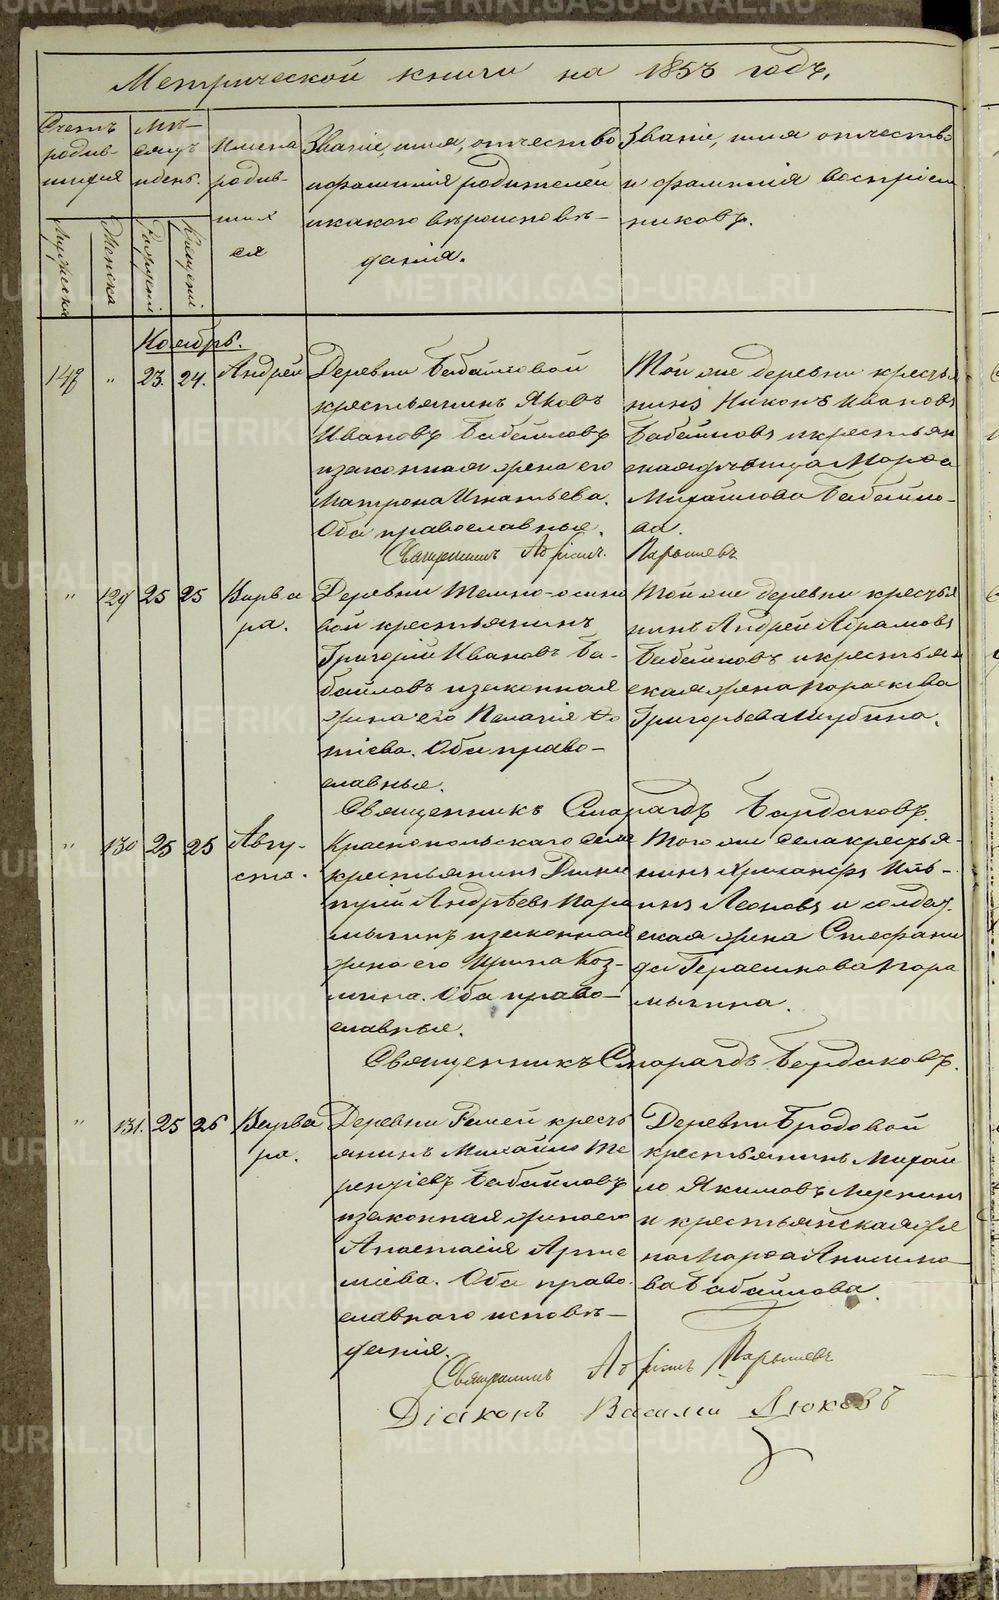 Метрической книги на 1853 годъ.
Счетъ родив-шихся
Мѣ-сяцъ и день.
Имена родив-шихся
Званіе, имя, отчество
и фамилія родителей
и какого вѣроисповѣ-
данія.
Званіе, имя отчество
и фамилія воспріем
никовъ.
Мужеска
Женска
Рожденія
Крещенія
Ноябрь.
147 " 23. 24. Андрей
Деревни Бабайловой
крестьянинъ Яковъ
Ивановъ Бабайловъ
и законная жена его
Матрона Игнатьева.
Оба православные.
Той же деревни крестья
нинъ Никонъ Ивановъ
Бабайловъ и крестьян
ская дѣвица Марѳа
Михайлова Бабайло-
ва.
Священникъ Адріанъ Парышевъ
" 129 25 25 Варва
ра.
Деревни Темно-осино
вой крестьянинъ
Григорій Ивановъ Ба-
байловъ и законная
жена его Пелагія Фо
тіева. Оба право-
славные.
Той же деревни крестья
нинъ Андрей Абрамовъ
Бабайловъ и крестьян
ская жена Параскева
Григорьева Шубина.
Священникъ Смарагдъ Бордаковъ.
" 130 25 25 Авгу-
ста.
Краснопольскаго села
крестьянинъ Дими
трій Андрѣевъ Пара
мычинъ и законная
жена его Ирина Коз-
мина. Оба право-
славные.
Того же села крестья-
нинъ Хрисанфъ Иль-
инъ Леоновъ и солдат
ская жена Стефани
да Герасимова Пара
мычина.
Священникъ Смарагдъ Бордаковъ.
" 131. 25 26 Варва
ра.
Деревни Реши крестья
янинъ Михайло Те
рентіевъ Бабайловъ
и законная жена его
Анастасія Арте
міева. Оба право
славнаго исповѣ-
данія.
Деревни Бродовой
крестьянинъ Михай
ло Якимовъ Лузинъ
и крестьянская же
на Марѳа Анисимо
ва Бабайлова.
Священникъ Адріанъ Парышевъ
Діаконъ Василій Луковъ